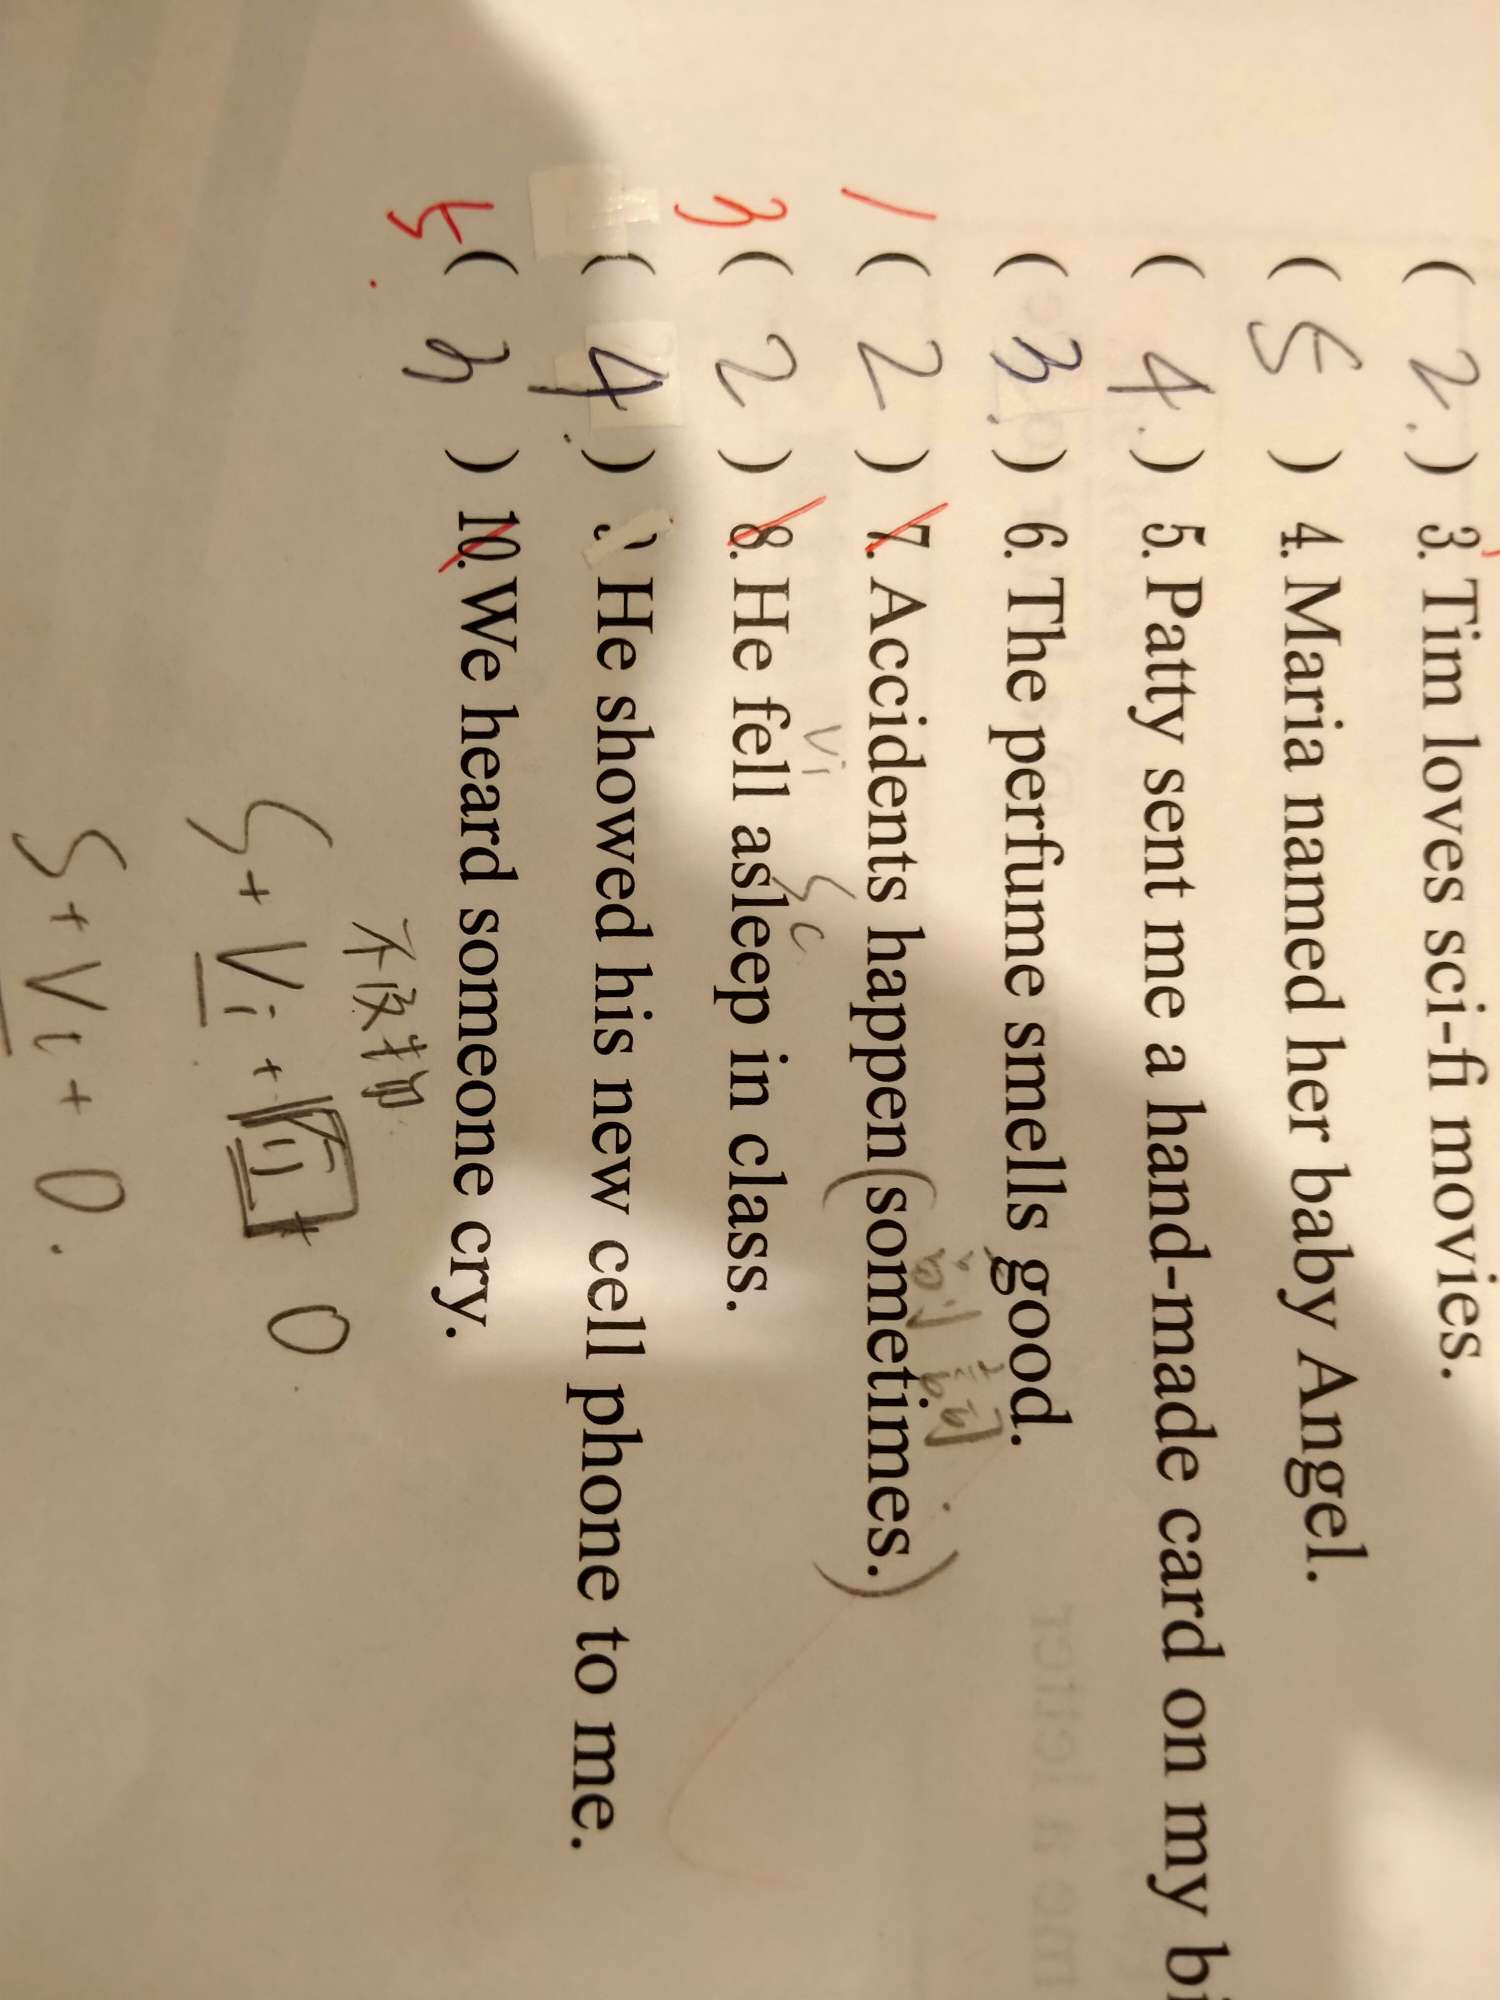 ( 2. ) 3. Tim loves sci-fi movies.
( 5 ) 4. Maria named her baby Angel.
( 4. ) 5. Patty sent me a hand-made card on my bi
( 3. ) 6. The perfume smells good.
1 ( 2 ) 7. Accidents happen (sometimes.)
Vi SC
3 ( 2 ) 8. He fell asleep in class.
( 4. ) He showed his new cell phone to me.
5 ( 3 ) 10. We heard someone cry.
S + Vi + 介 + O
S + Vt + O.